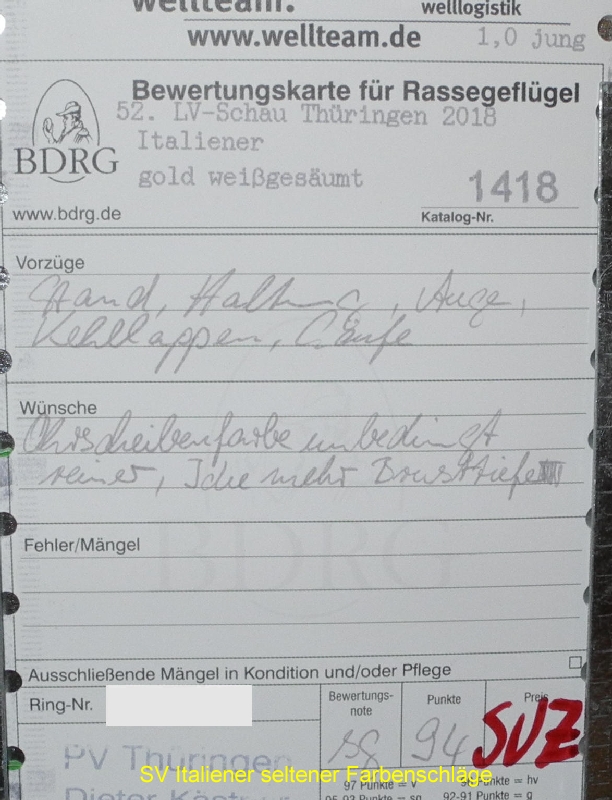 wellteam.
welllogistik
www.wellteam.de
1,0 jung
Bewertungskarte für Rassegeflügel
52. LV-Schau Thüringen 2018
Italiener
BDRG
gold weißgesäumt
1418
www.bdrg.de
Katalog-Nr.
Vorzüge
Stand, Haltung, Auge,
Kehllappen, Läufe
Wünsche
Ohrscheibenfarbe unbedingt
reiner, mehr Brusttiefe
Fehler/Mängel
BDRG
Ausschließende Mängel in Kondition und/oder Pflege
Ring-Nr.
Bewertungs-
note
Punkte
Preis
sg
94
SVZ
PV Thüringen
SV Italiener seltener Farbenschläge
97 Punkte = v
Punkte = hv
Dieter
92-91 Punkte = g